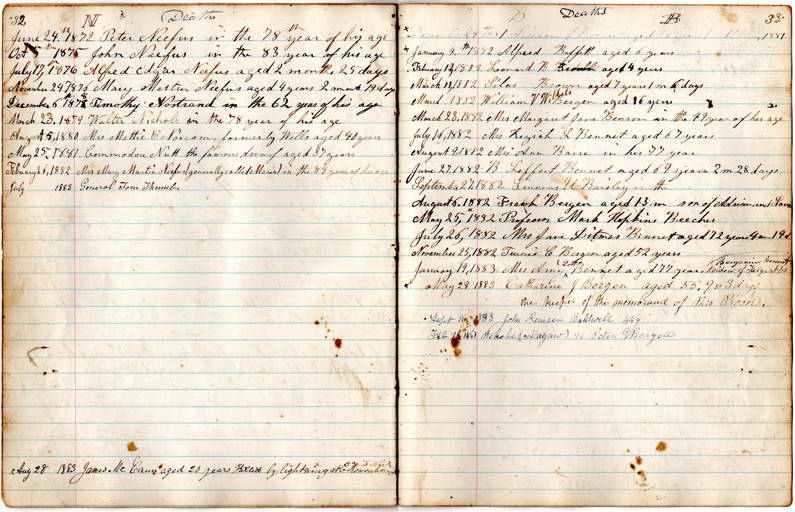 32.
N
Deaths
June 24.th 1872 Peter Neefus in the 78th year of his age
Oct 5th 1875 John Neefus in the 83 year of his age
July 19th 1876 Alfred Edgar Neefus aged 2 months 25 days
November 24 1876 Mary Martin Neefus aged 4 years 2 month 19 days
December 6th 1878 Timothy Nostrand in the 62 year of his age
March 23, 1879 Walter Nichols in the 78 year of his age
August 5, 1880 Mrs Mattie B Parcom, formerly Wells aged 40 years
May 25, 1881, Commodore Nutt the famous dwarf aged 37 years
February 6, 1882 Mrs Mary Martin Neefus (generally called Maria) in the 85 year of her age
July 1883 General Tom Thumb
Aug 28 1883 James Mc aged 20 years by lightning at
Deaths
B
33.
1881
January 9.th 1882 Alfred Buffett aged 6 years
February 12, 1882 Leonard B aged 4 years
March 11, 1882 Silas Benson aged 7 years 1 m 6 days
March 1882 William Bergen aged 16 years
March 23, 1882 Mrs Margaret Jane Benson in the 49 year of her age
July 16, 1882 Mrs Keziah L Bennet aged 67 years
August 9, 1882 Mrs Ann Barre in his 77 year
June 27, 1882 B Leffert Bennet aged 69 years 2 m 28 days
September 27, 1882 in th
August 6, 1882 Frank Bergen aged 13 m son of Adrian and
May 25, 1882 Professor Mark Hopkins Beecher
July 26, 1882 Mrs Jane Ditmas Bennet aged 72 years 4 m 19 d
November 25, 1882 Teunis C Bergen aged 52 years
January 19, 1883 Mrs Bennet aged 77 years widow of
May 28 1883 Catharine J Bergen aged 55, 9 m 3 days
the keeper of the memorand of this Book.
Sept 1883 John Remsen
Feb 1861 Peter Bergen